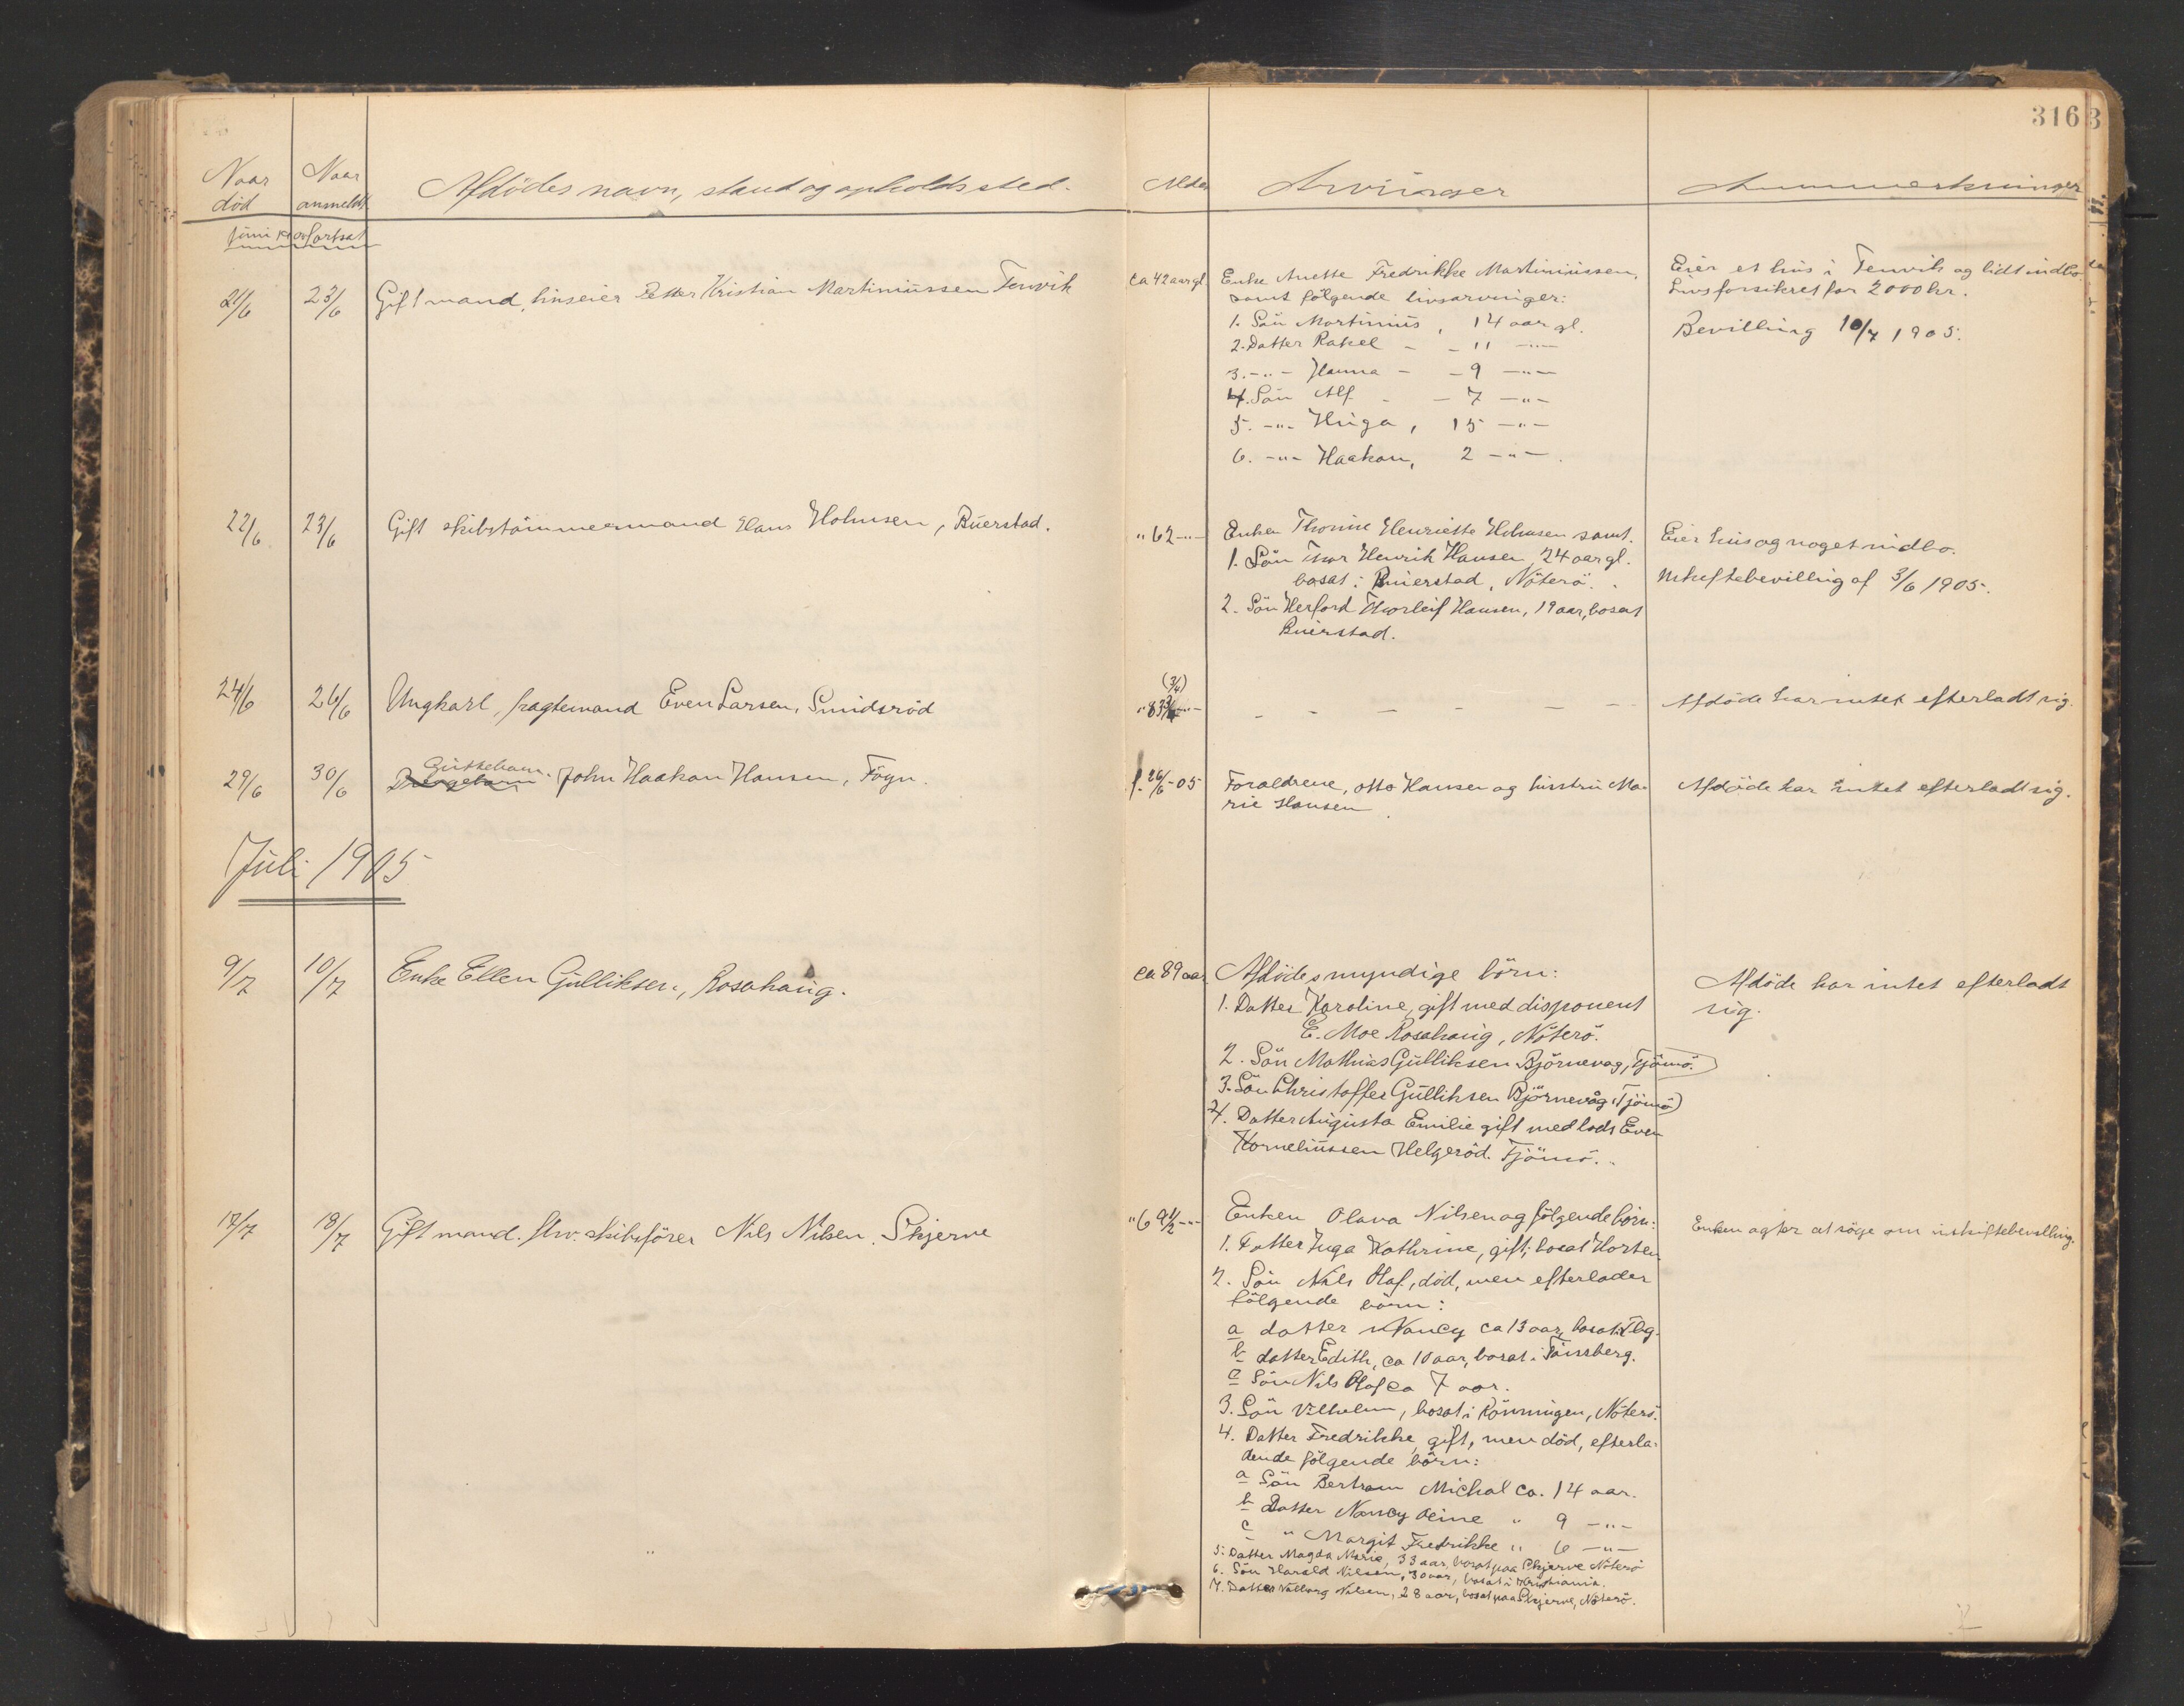 316
Naar død
Naar anmeldt
Afdödes navn, stand og opholdssted.
Alder
Arvinger
Anmærkninger
Juni 1905 fortsat
21/6 23/6 Gift mand, huseier Petter Kristian Martiniussen Tenvik
ca 42 aar gl.
Enke Anette Fredrikke Martiniussen,
samt fölgende livsarvinger:
1. Sön Martinius, 14 aar gl.
2. Datter Rakel - - 11 -"-
3. -"- Hanna - - 9 -"-
4. Sön Alf - - 7 -"-
5. -"- Huga, 15 -"-
6. -"- Haakon, 2 -"-.
Eier et hus i Tenvik og lidt indbo.
Livsforsikret for 2000 kr.
Bevilling 10/7 1905.
22/6 23/6 Gift skibstömmermand Hans Holmsen, Buerstad.
" 62 -"-
Enken Thorine Henriette Holmsen samt.
1. Sön Thor Henrik Hansen 24 aar gl.
bosat i Buerstad, Nöterö.
2. Sön Herford Thorleif Hansen, 19 aar, bosat
Buerstad.
Eier hus og noget indbo.
Uskiftebevilling af 3/6 1905.
24/6 26/6 Ungkarl, fragtemand Even Larsen, Smidsröd
(3/4)
" 83 3/4 -"-
- - - - - -
Afdöde har intet efterladt sig.
29/6 30/6 Guttebarn John Haakon Hansen, Föyn.
f. 26/6-05
Foraldrene, Otto Hansen og hustru Ma-
rie Hansen.
Afdöde har intet efterladt sig.
Juli 1905
9/7 10/7 Enke Ellen Gulliksen, Rosahaug.
ca 89 aar
Afdödes myndige börn:
1. Datter Karoline, gift med disponent
E. Moe Rosahaug, Nöterö.
2. Sön Mathias Gulliksen Björnevag, Tjömö.
3. Sön Christoffer Gulliksen Björnevåg (Tjömö)
4. Datter Augusta Emilie gift med lods Even
Korneliussen Helgeröd. Tjömö.
Afdöde har intet efterladt
sig.
17/7 18/7 Gift mand. fhv. skibsförer Nils Nilsen, Skjerve
" 69 1/2 -"-
Enken Olava Nilsen og fölgende börn:
1. Datter Inga Kathrine, gift, bosat Horten
2. Sön Nils Olaf, död, men efterlader
fölgende börn:
a datter Nancy ca 13 aar, bosat i Tbg.
b datter Edith, ca 10 aar, bosat i Tönsberg.
c Sön Nils Olaf ca 7 aar.
3. Sön Vilhelm, bosat i Rönningen, Nöterö.
4. Datter Fredrikke, gift, men död, efterla-
dende fölgende börn:
a Sön Bertram Michal ca. 14 aar.
b Datter Nancy Oline " 9 -"-
c " Margit Fredrikke " 6 -"-
5. Datter Magda Marie, 33 aar, bosat paa Skjerve Nöterö
6. Sön Harald Nilsen, 30 aar, bosat i Kristiania.
7. Datter Valborg Nilsen, 28 aar, bosat paa Skjerve, Nöterö.
Enken agter at söge om uskiftebevilling.